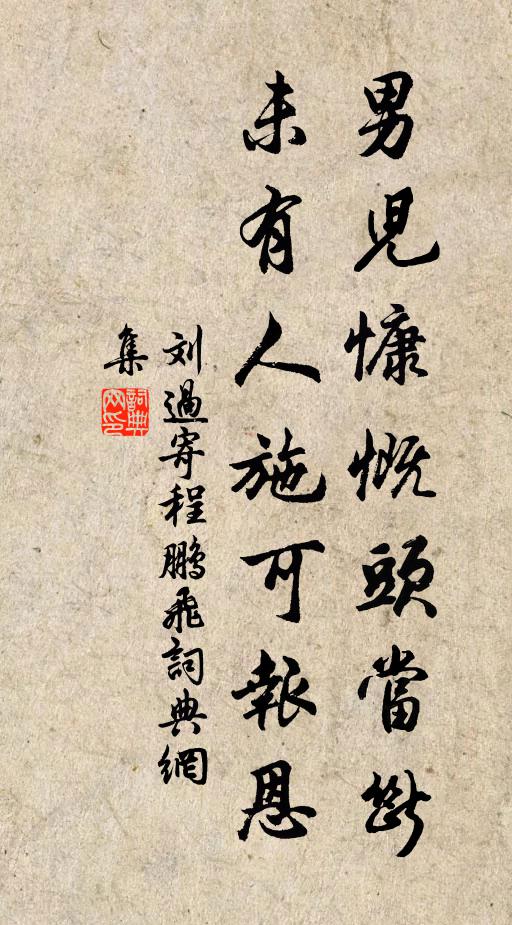 男兒慷慨頭當斷
未有人施可報恩
刘過寄程鵬飛詞典網
集
詞典網印